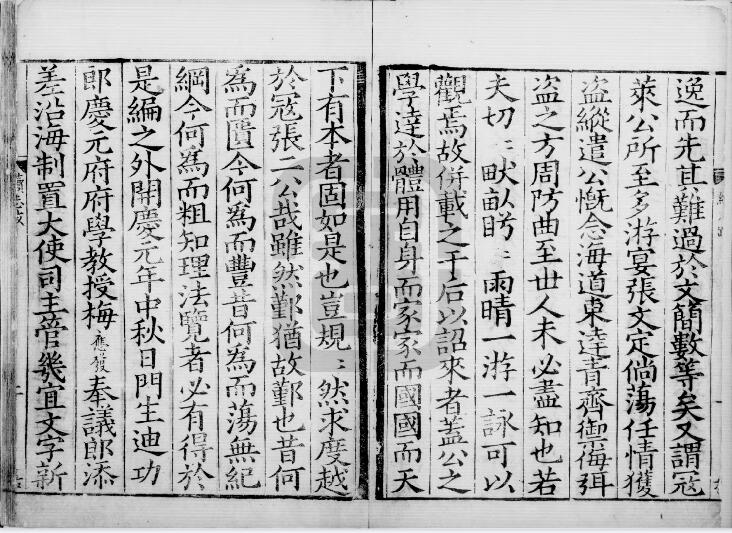 逸而先其難過於文簡數等矣又謂寇
萊公所至多游宴張文定倘蕩任情獲
盗縱遣公慨念海道東達青齊禦侮弭
盗之方周防曲至世人未必盡知也若
夫切〻畎畝眄〻雨晴一游一詠可以
觀焉故併載之于后以詔來者蓋公之
學達於體用自身而家家而國國而天
下有本者固如是也豈規〻然求度越
於寇張二公哉雖然鄞猶故鄞也昔何
為而匱今何為而豐昔何為而蕩無紀
綱今何為而粗知理法覽者必有得於
是編之外開慶元年中秋日門生迪功
郎慶元府府學教授梅應發奉議郎添
差沿海制置大使司主管機宜文字新